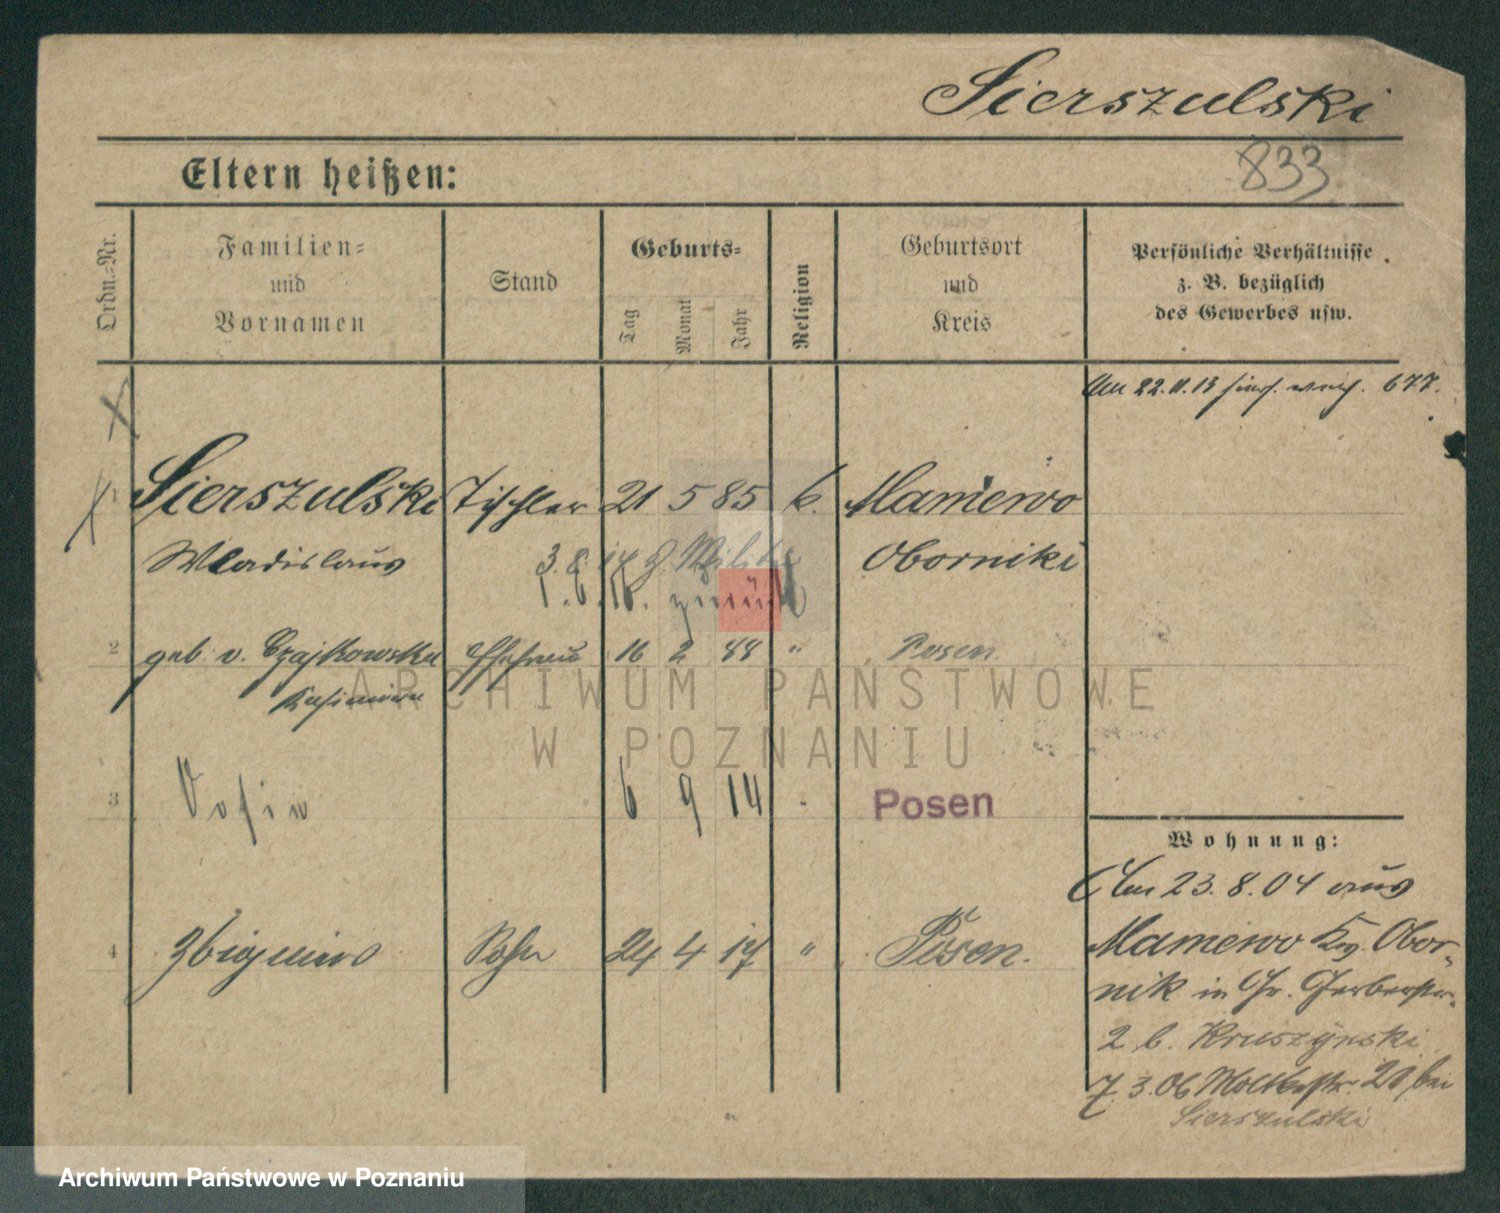 Sierszulski
833
Eltern heißen:
Ordn.-Nr.
Familien-
und
Vornamen
Stand
Geburts-
Tag
Monat
Jahr
Religion
Geburtsort
und
Kreis
Persönliche Verhältnisse
z. B. bezüglich
des Gewerbes usw.
Am 22.11.13 677.
1 Sierszulski Tischler 21 5 85 k. Mamiewo
Wladislaus Oborniki
3.8. z Militär
zurück
2 geb. v. Czajkowska Ehefrau 16 2 88 " Posen
Kasimira
ARCHIWUM PAŃSTWOWE
W POZNANIU
3 6 9 14 Posen
Wohnung:
Am 23.8.04 aus
4 Zbigniew Sohn 24 4 17 " Posen.
Mamiewo Obor-
nik in Gr. Gerberstr.
2 b. Kruszynski
7.3.06 Moltkestr. 20 bei
Sierszulski
Archiwum Państwowe w Poznaniu